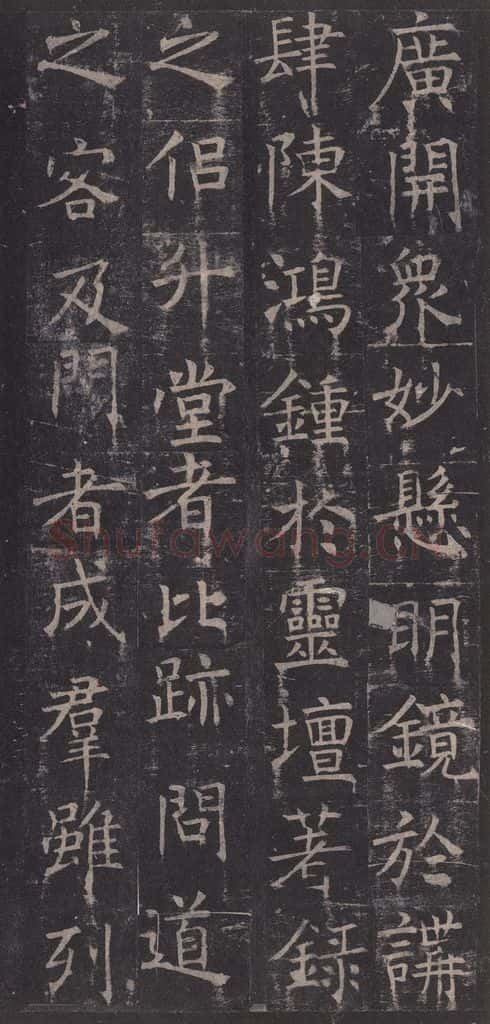 廣開衆妙懸明鏡於講
肆陳鴻鍾於靈壇著録
之侣升堂者比跡問道
之客及門者成羣雖列
Shufawang.cn